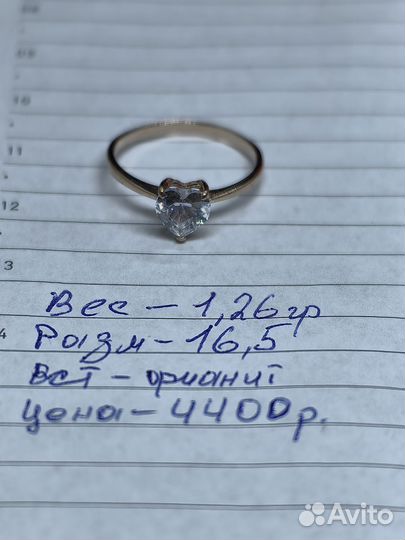 09
10
11
12
3
Вес - 1,26 гр
4 Разм - 16,5
вст - фианит
цена - 4400 р.
Avito